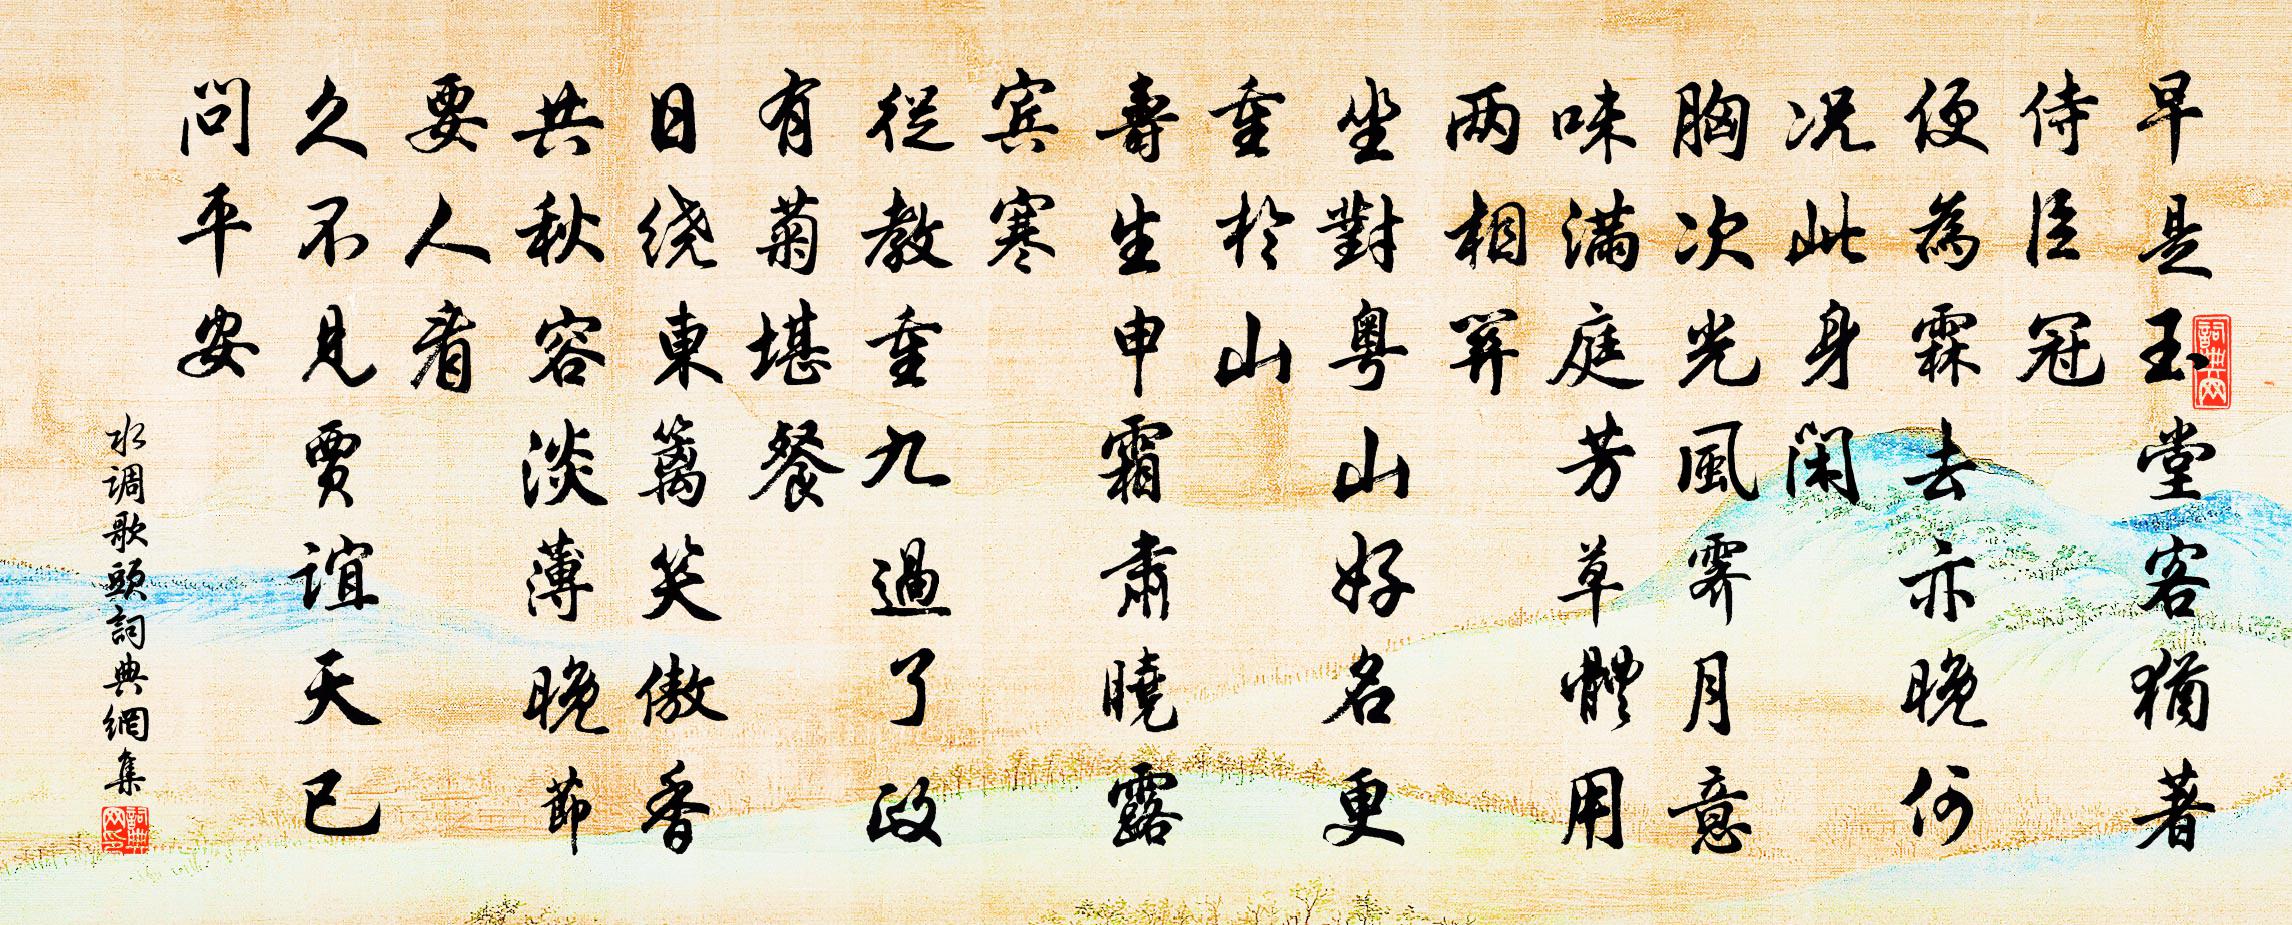 早是玉堂客猶著
侍臣冠
便為霖去亦晚何
况此身閑
胸次光風霽月意
味滿庭芳草體用
两相關
坐對粤山好名更
重於山
壽生申霜肅曉露
宾寒
從教重九過了政
有菊堪餐
日绕東籬笑傲香
共秋容淡薄晚節
要人看
久不見賈誼天已
問平安
水调歌頭詞典網集
詞典网
詞典网印